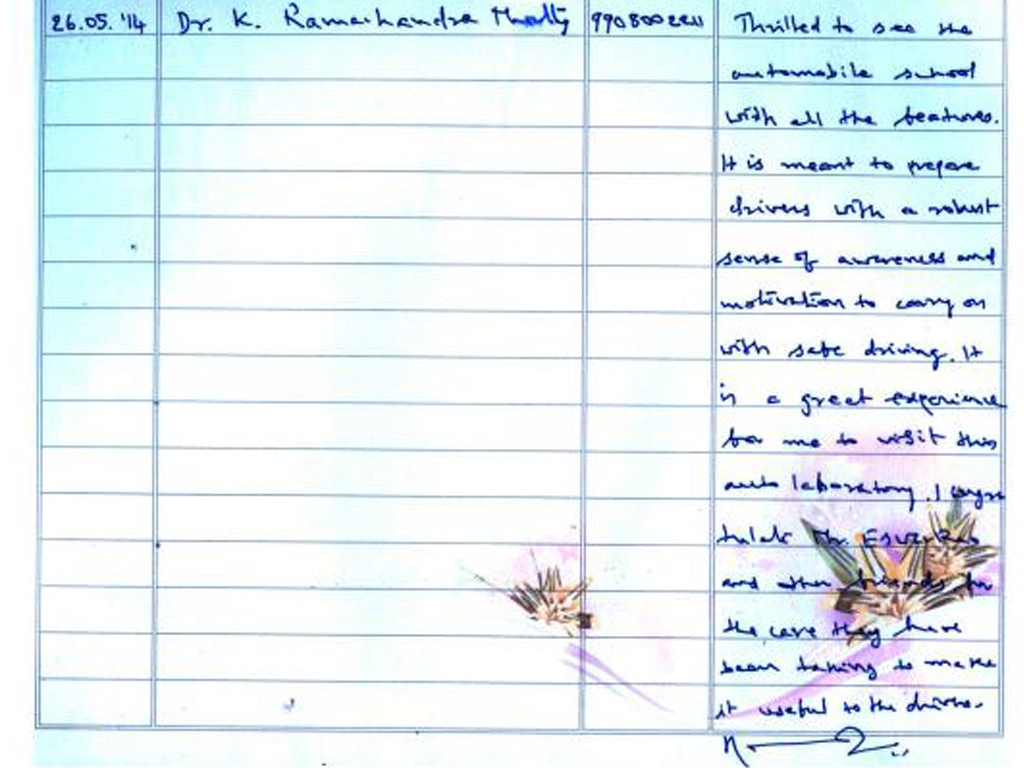 26.05.'14 Dr. K. Ramachandra Murthy Thrilled to see the
automobile school
with all the features.
It is meant to prepare
drivers with a robust
sense of awareness and
motivation to carry on
with safe driving. It
is a great experience
for me to visit this
auto laboratory. I congra
tulate Mr.
and other friends for
the care they have
been taking to make
it useful to the drivers.